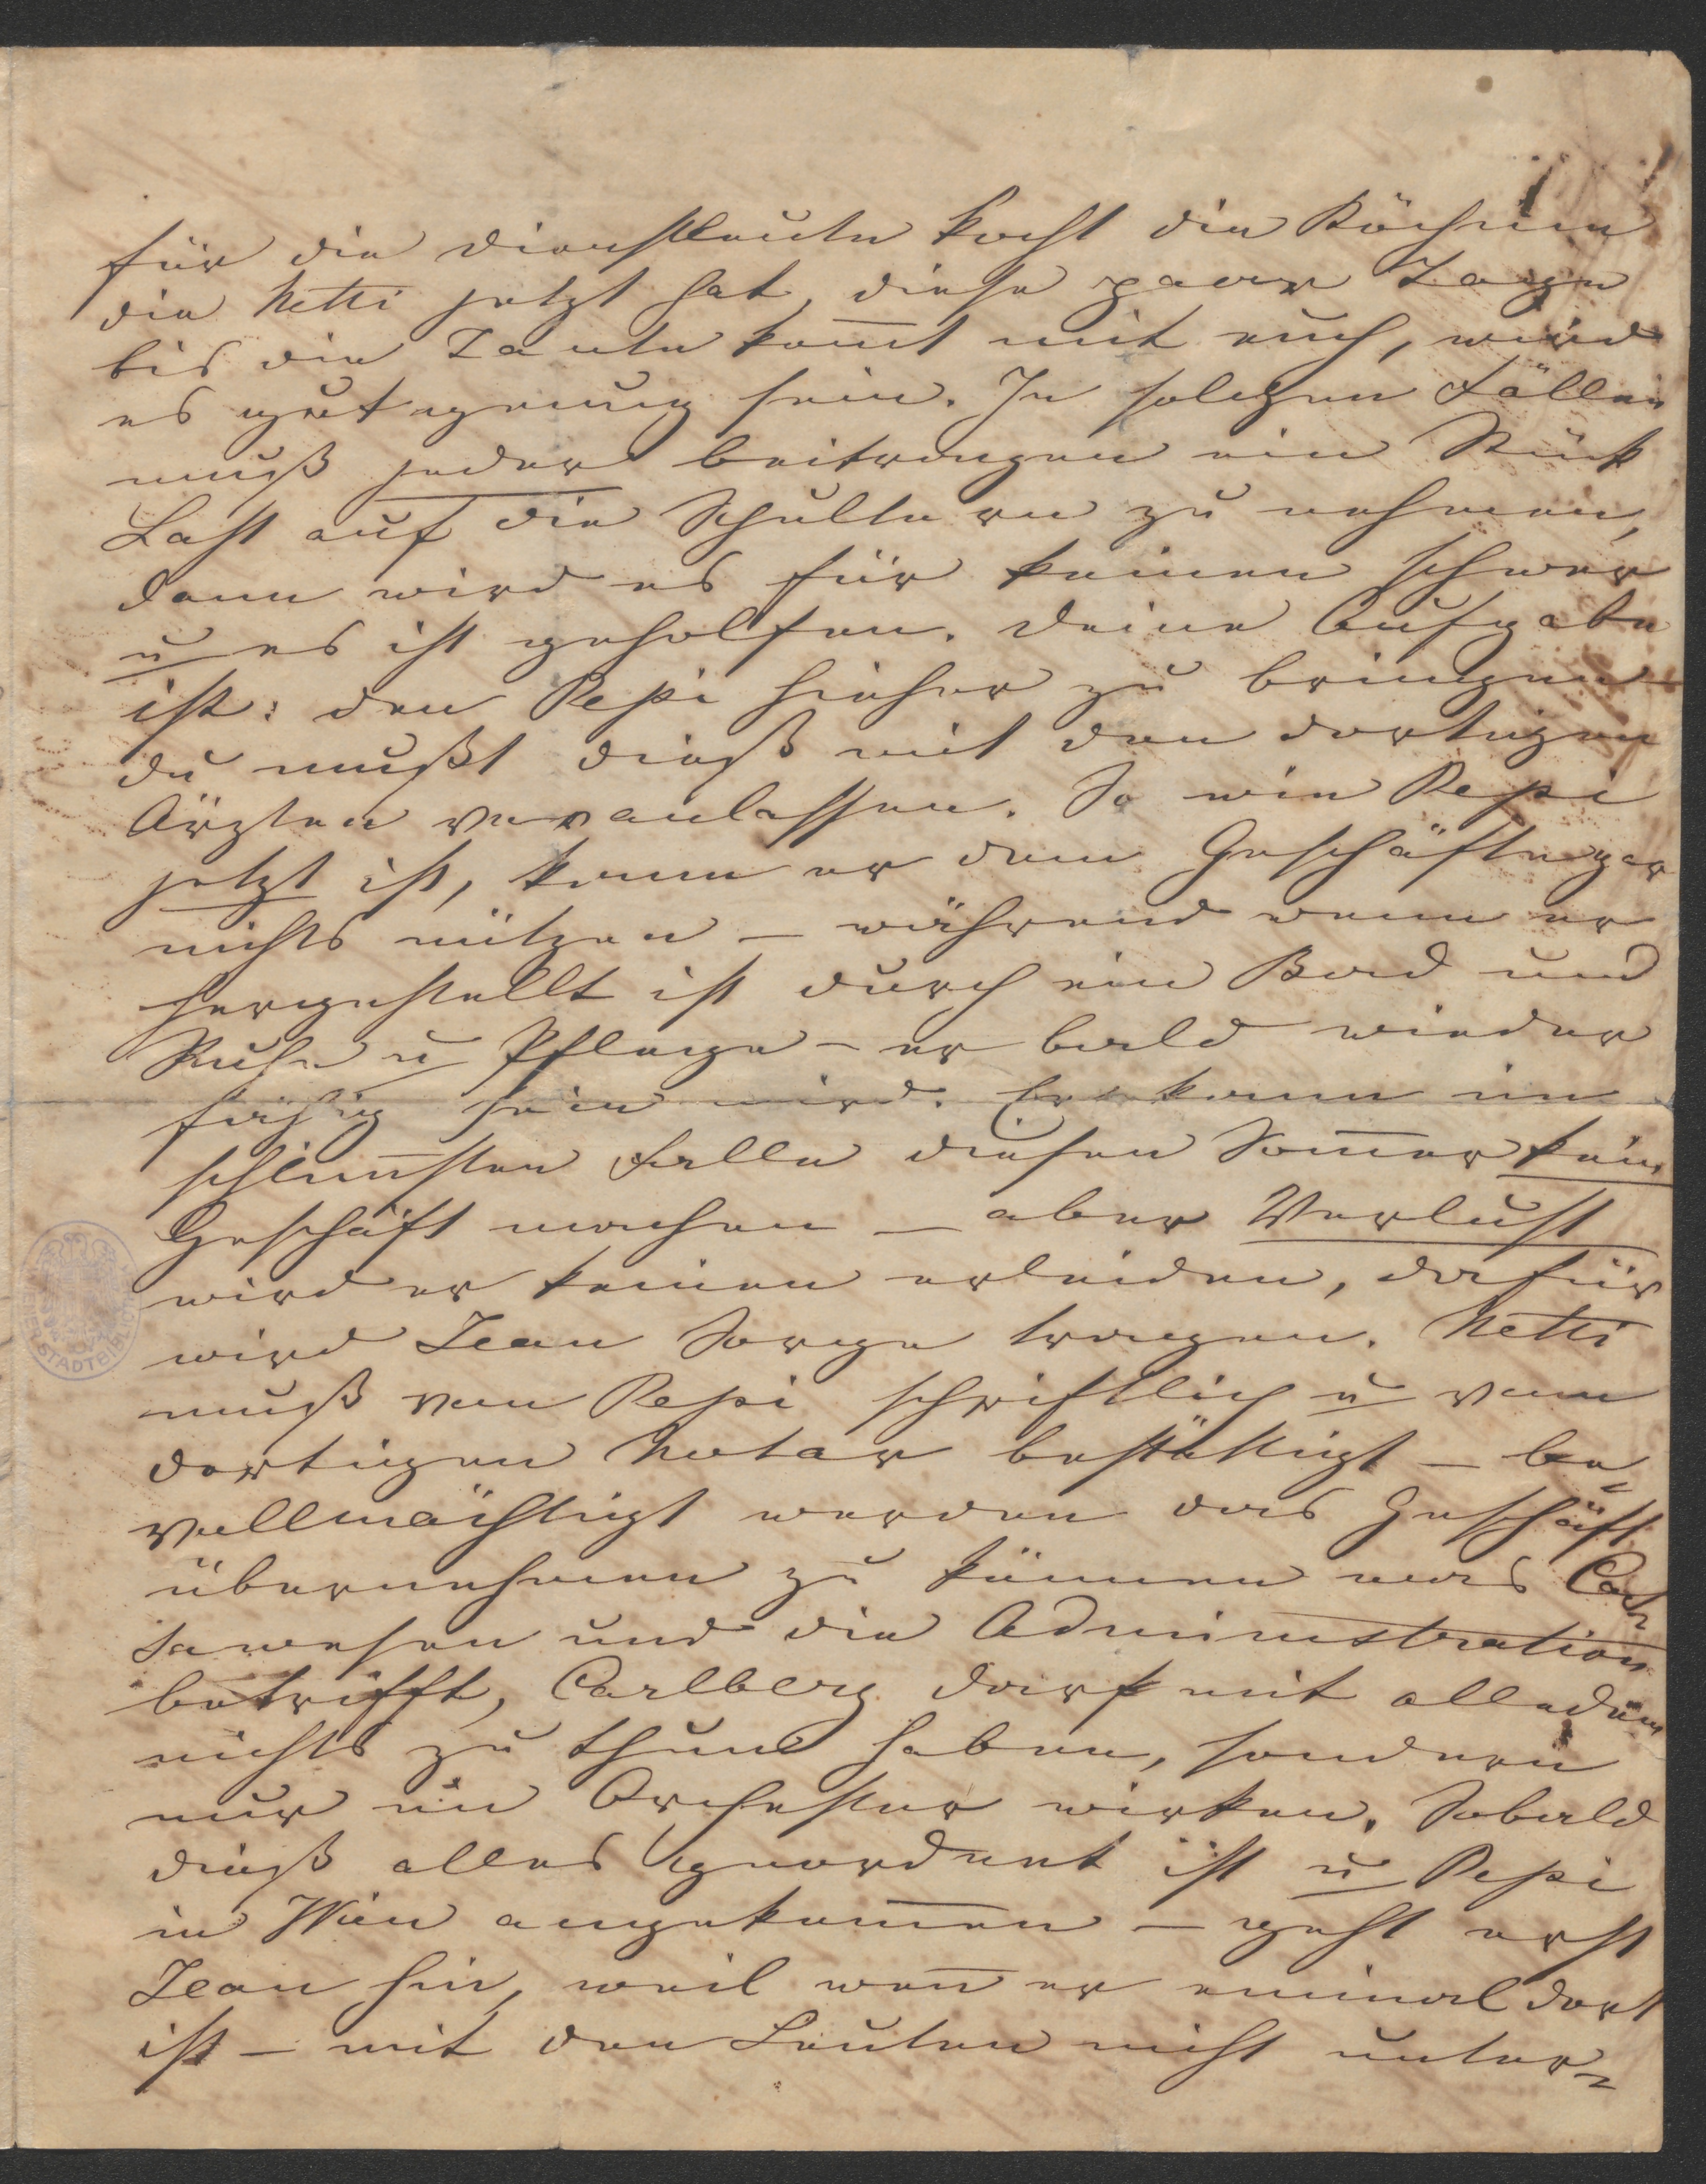 für die Dienstleute kocht die Köchin
die Netti jetzt hat, diese paar Tage
bis die Tante kom̅t mit euch, wird
es gut genug sein. In solchen Fällen
muß jeder beitragen ein Stück
Last auf die Schultern zu nehmen,
dann wird es für keinen schwer
u es ist geholfen. Deine Aufgabe
ist: den Pepi hieher zu bringen
du mußt dieß mit den dortigen
Ärzten veranlassen. So wie Pepi
jetzt ist, kann er dem Geschäfte gar
nichts nützen – während wenn er
hergestellt ist durch ein Bad und
Ruhe u Pflege – er bald wieder
fähig sein wird. Er kann im
schlim̅sten Falle diesen Som̅er kein
Geschäft machen – aber Verlust
wird er keinen erleiden, dafür
wird Jean Sorge tragen. Netti
muß von Pepi schriftlich u vom
dortigen Notar bestättigt – be-
vollmächtigt werden das Geschäft
übernehmen zu können was Cas-
sawesen und die Administration
betrifft, Carlberg darf mit alledem
nichts zu thun haben, sondern
nur im Orchester wirken. Sobald
dieß alles geordnet ist u Pepi
in Wien angekom̅en – geht erst
Jean hin, weil wen̅ er einmal dort
ist – mit den Leuten nicht unter-
STADTBIBLIOTHEK